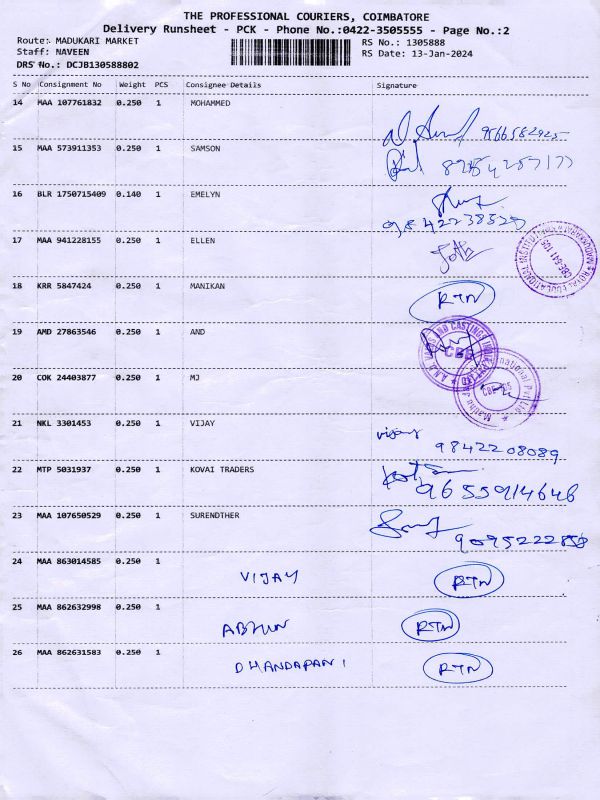 THE PROFESSIONAL COURIERS, COIMBATORE
Delivery Runsheet - PCK - Phone No.:0422-3505555 - Page No.:2
Route: MADUKARI MARKET RS No.: 1305888
Staff: NAVEEN RS Date: 13-Jan-2024
DRS No.: DCJB130588802
S No Consignment No Weight PCS Consignee Details Signature
14 MAA 107761832 0.250 1 MOHAMMED
9566582925
15 MAA 573911353 0.250 1 SAMSON
16 BLR 1750715409 0.140 1 EMELYN
9842238527
17 MAA 941228155 0.250 1 ELLEN
18 KRR 5847424 0.250 1 MANIKAN RTN
19 AMD 27863546 0.250 1 AND
20 COK 24403877 0.250 1 MJ
21 NKL 3301453 0.250 1 VIJAY vijay
9842208089
22 MTP 5031937 0.250 1 KOVAI TRADERS
9655914646
23 MAA 107650529 0.250 1 SURENDTHER
9095222858
24 MAA 863014585 0.250 1 VIJAY RTN
25 MAA 862632998 0.250 1 ABHUN RTN
26 MAA 862631583 0.250 1 DHANDAPANI RTN